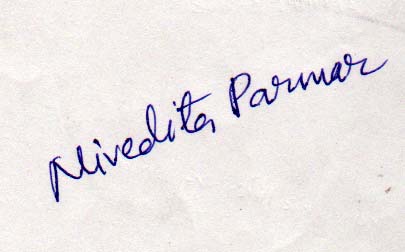 Nivedita Parmar